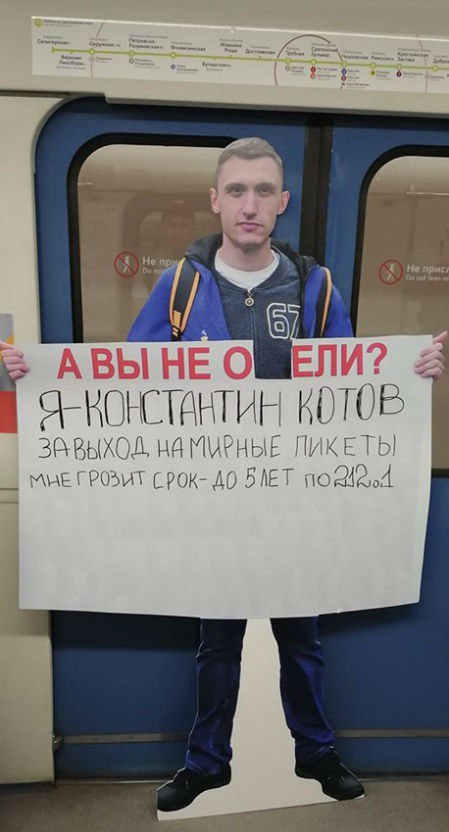 Селигерская
Верхние
Лихоборы
Окружная
Петровско-
Разумовская
Фонвизинская
Бутырская
Марьина
Роща
Достоевская
Трубная
Сретенский
бульвар
Чкаловская
Римская
Крестьянская
Застава
Не прис
Do not lean o
Не прис
Do not lean on
67
А ВЫ НЕ О ЕЛИ?
Я-КОНСТАНТИН КОТОВ
ЗА ВЫХОД НА МИРНЫЕ ПИКЕТЫ
МНЕ ГРОЗИТ СРОК-ДО 5 ЛЕТ ПО 212.1